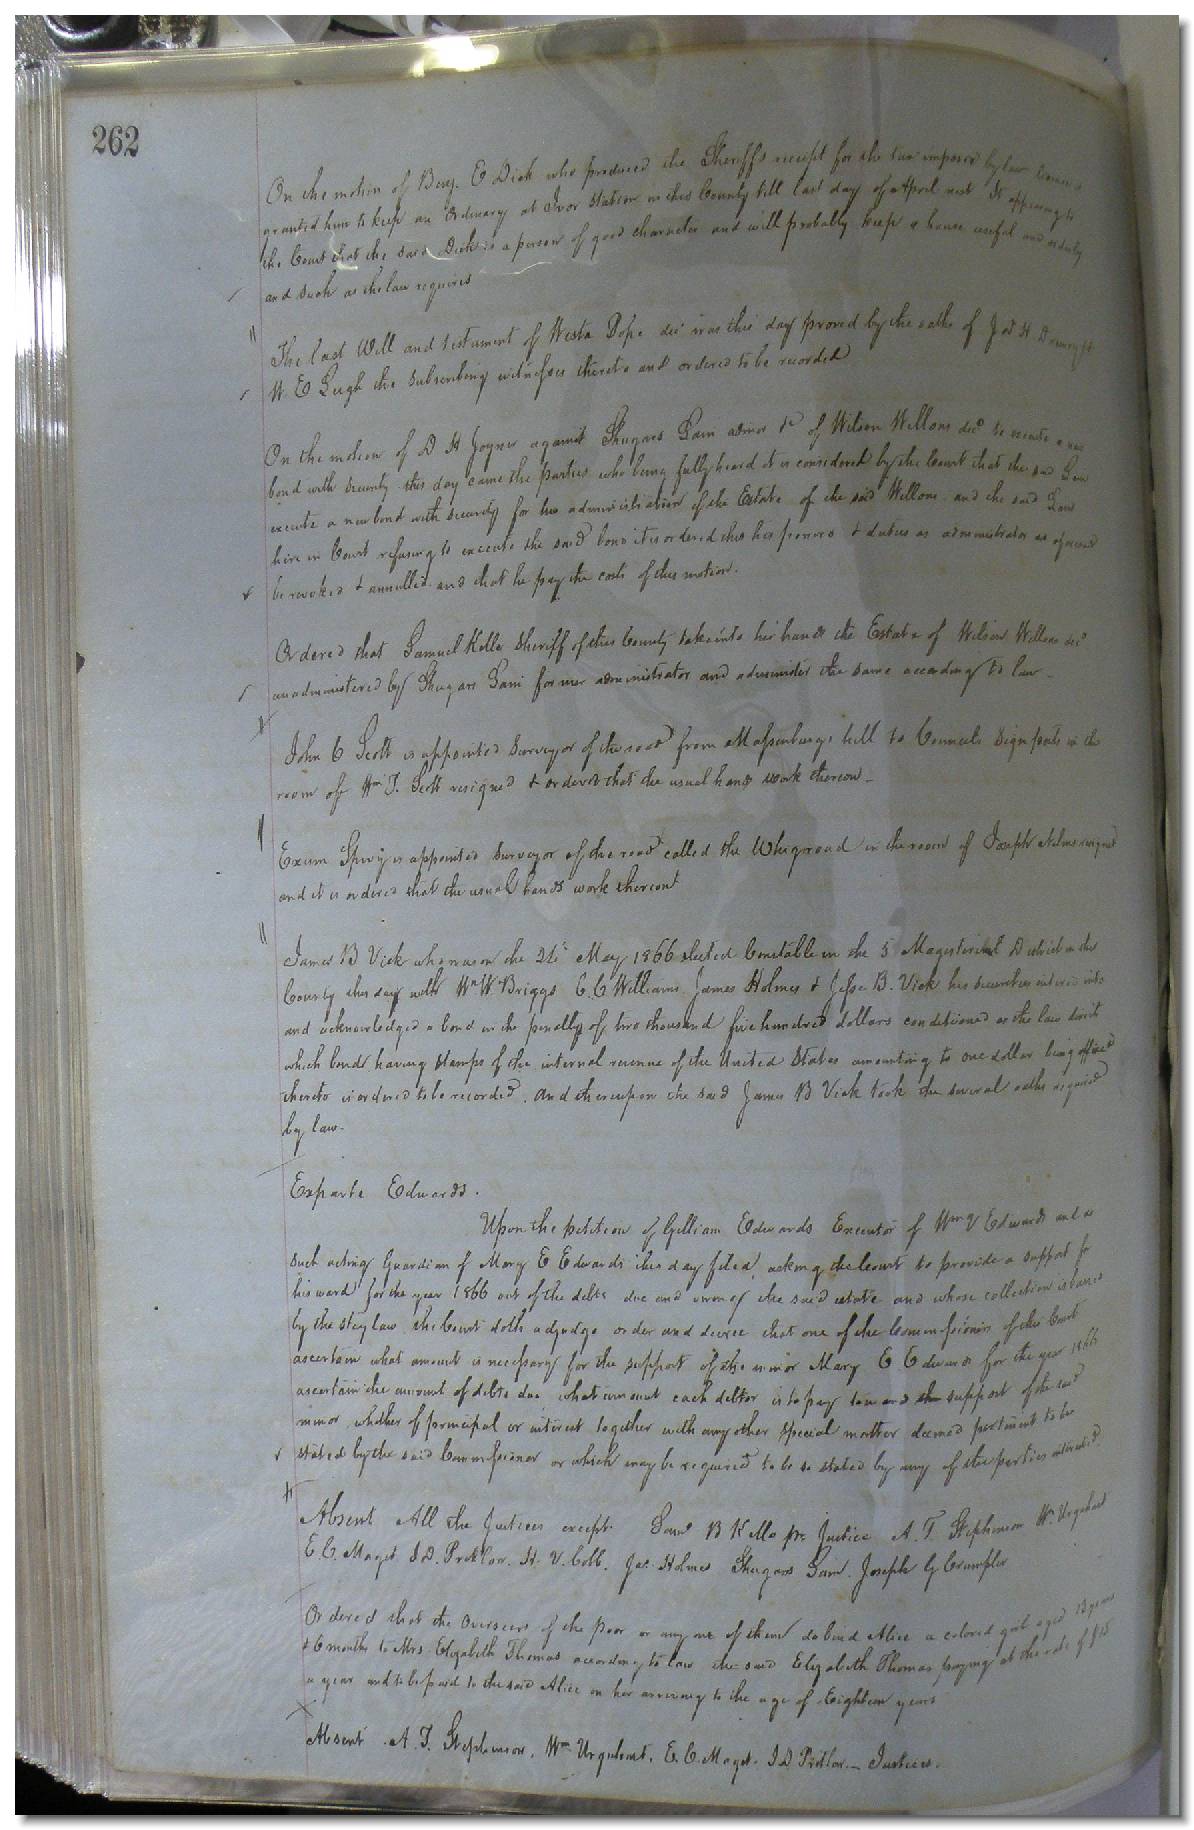 262
On the motion of Benj. E Dick who produced the Sheriff's receipt for the tax imposed by law license is
granted him to keep an Ordinary at Ivor Station in this County till last day of April next It appearing to
the Court that the said Dick is a person of good character and will probably keep a house useful and orderly
and such as the law requires
The last Will and testament of Weston Pope decd was this day proved by the oaths of Jas H
W. E Pugh the subscribing witnesses thereto and ordered to be recorded
On the motion of D H Joyner against Shugars Lain admor &c of Wilson Willons decd to execute a new
bond with security this day came the parties who being fully heard it is considered by the Court that the said Lain
execute a new bond with security for his administration of the Estate of the said Willons and the said Lain
here in Court refusing to execute the said bond it is ordered this his powers & duties as administrator as aforesaid
be revoked & annulled and that he pay the costs of this motion.
Ordered that Samuel Kello Sheriff of this County take into his hands the Estate of Wilson Willons decd
unadministered by Shugars Lain former administrator and administer the same according to law
John C Scott is appointed Surveyor of the road from Massenburgs hill to Councils Sign posts in the
room of Wm T. Scott resigned & ordered that the usual hands work thereon
Exum Spivy is appointed Surveyor of the road called the Whiproad in the room of Joseph Nelms resigned
and it is ordered that the usual hands work thereon
James B Vick who was on the 24th May 1866 elected Constable in the 5 Magisterial District in this
County this day with Wm W Briggs E. C Williams James Holmes & Jesse B. Vick his securities entered into
and acknowledged a bond in the penalty of two thousand five hundred dollars conditioned as the law directs
which bond having stamps of the internal revenue of the United States amounting to one dollar being affixed
thereto is ordered to be recorded. And thereupon the said James B Vick took the several oaths required
by law.
Exparte Edwards.
Upon the petition of Gilliam Edwards Executor of Wm V Edwards and as
such acting Guardian of Mary E Edwards this day filed, asking the Court to provide a support for
his ward for the year 1866 out of the debts due and owing the said estate and whose collection is barred
by the stay law the Court doth adjudge order and decree that one of the Commissioners of this Court
ascertain what amount is necessary for the support of the minor Mary E. Edwards for the year 1866
ascertain the amount of debts due what amount each debtor is to pay toward the support of the said
minor whether of principal or interest together with any other special matter deemed pertinent to be
stated by the said Commissioner or which may be required to be so stated by any of the parties interested.
Absent All the Justices except Saml B Kello pr. Justice A. T. Stephenson Wm Urquhart
E. C. Maget J. D. Pretlow. H. V. Cobb. Jas. Holmes Shugars Lain. Joseph G Crumpler
Ordered that the Overseers of the poor or any one of them do bind Alice a colored girl aged 13 years
& 6 months to Mrs. Elizabeth Thomas according to law the said Elizabeth Thomas paying at the rate of $15
a year and to be paid to the said Alice on her arriving to the age of Eighteen years
Absent A. T. Stephenson. Wm Urquhart. E. C. Maget. J D Pretlow Justices.